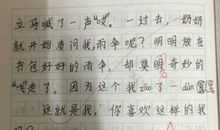 立马喊了一声“嗯”。一过去，奶奶
就开始责问我，雨伞呢？明明放在
书包好好的雨伞，却莫明奇妙的
走了。因为这个我 了一 
这就是我，你喜欢这样的我